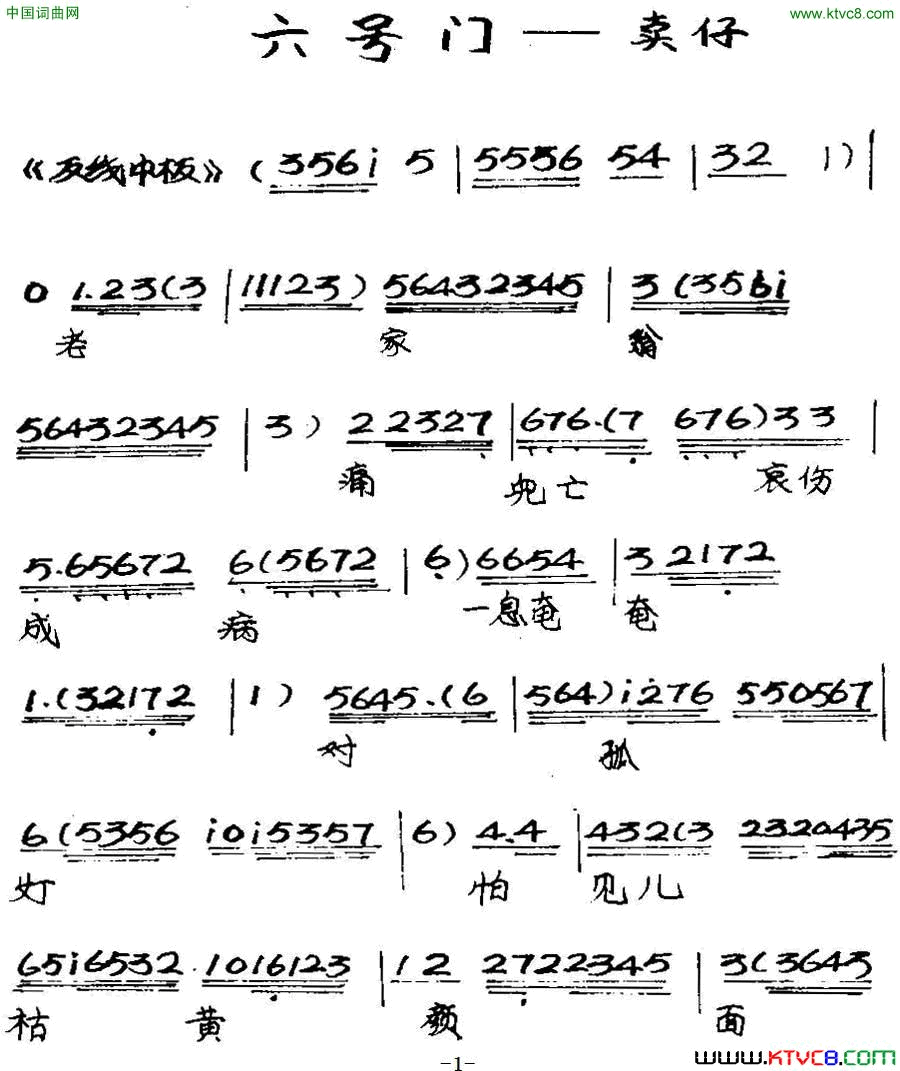 中国词曲网
www.ktvc8.com
六号门——卖仔
《反线中板》 (356i 5 | 5556 54 | 32 1) |
0 1.23(3 | 11123) 56432345 | 3 (356i
老 家 翁
56432345 | 3) 22327 | 676.(7 676)33 |
痛 儿亡 哀伤
5.65672 6(5672 | 6)6654 | 32172
成 病 一息奄 奄
1.(32172 | 1) 5645.(6 | 564)i276 550567 |
对 孤
6(5356 i0i5357 | 6) 4.4 | 432(3 2320435
灯 怕 见儿
65i6532 1016123 | 12 2722345 | 3(3643
枯 黄 颜 面
-1-
www.KTVC8.com